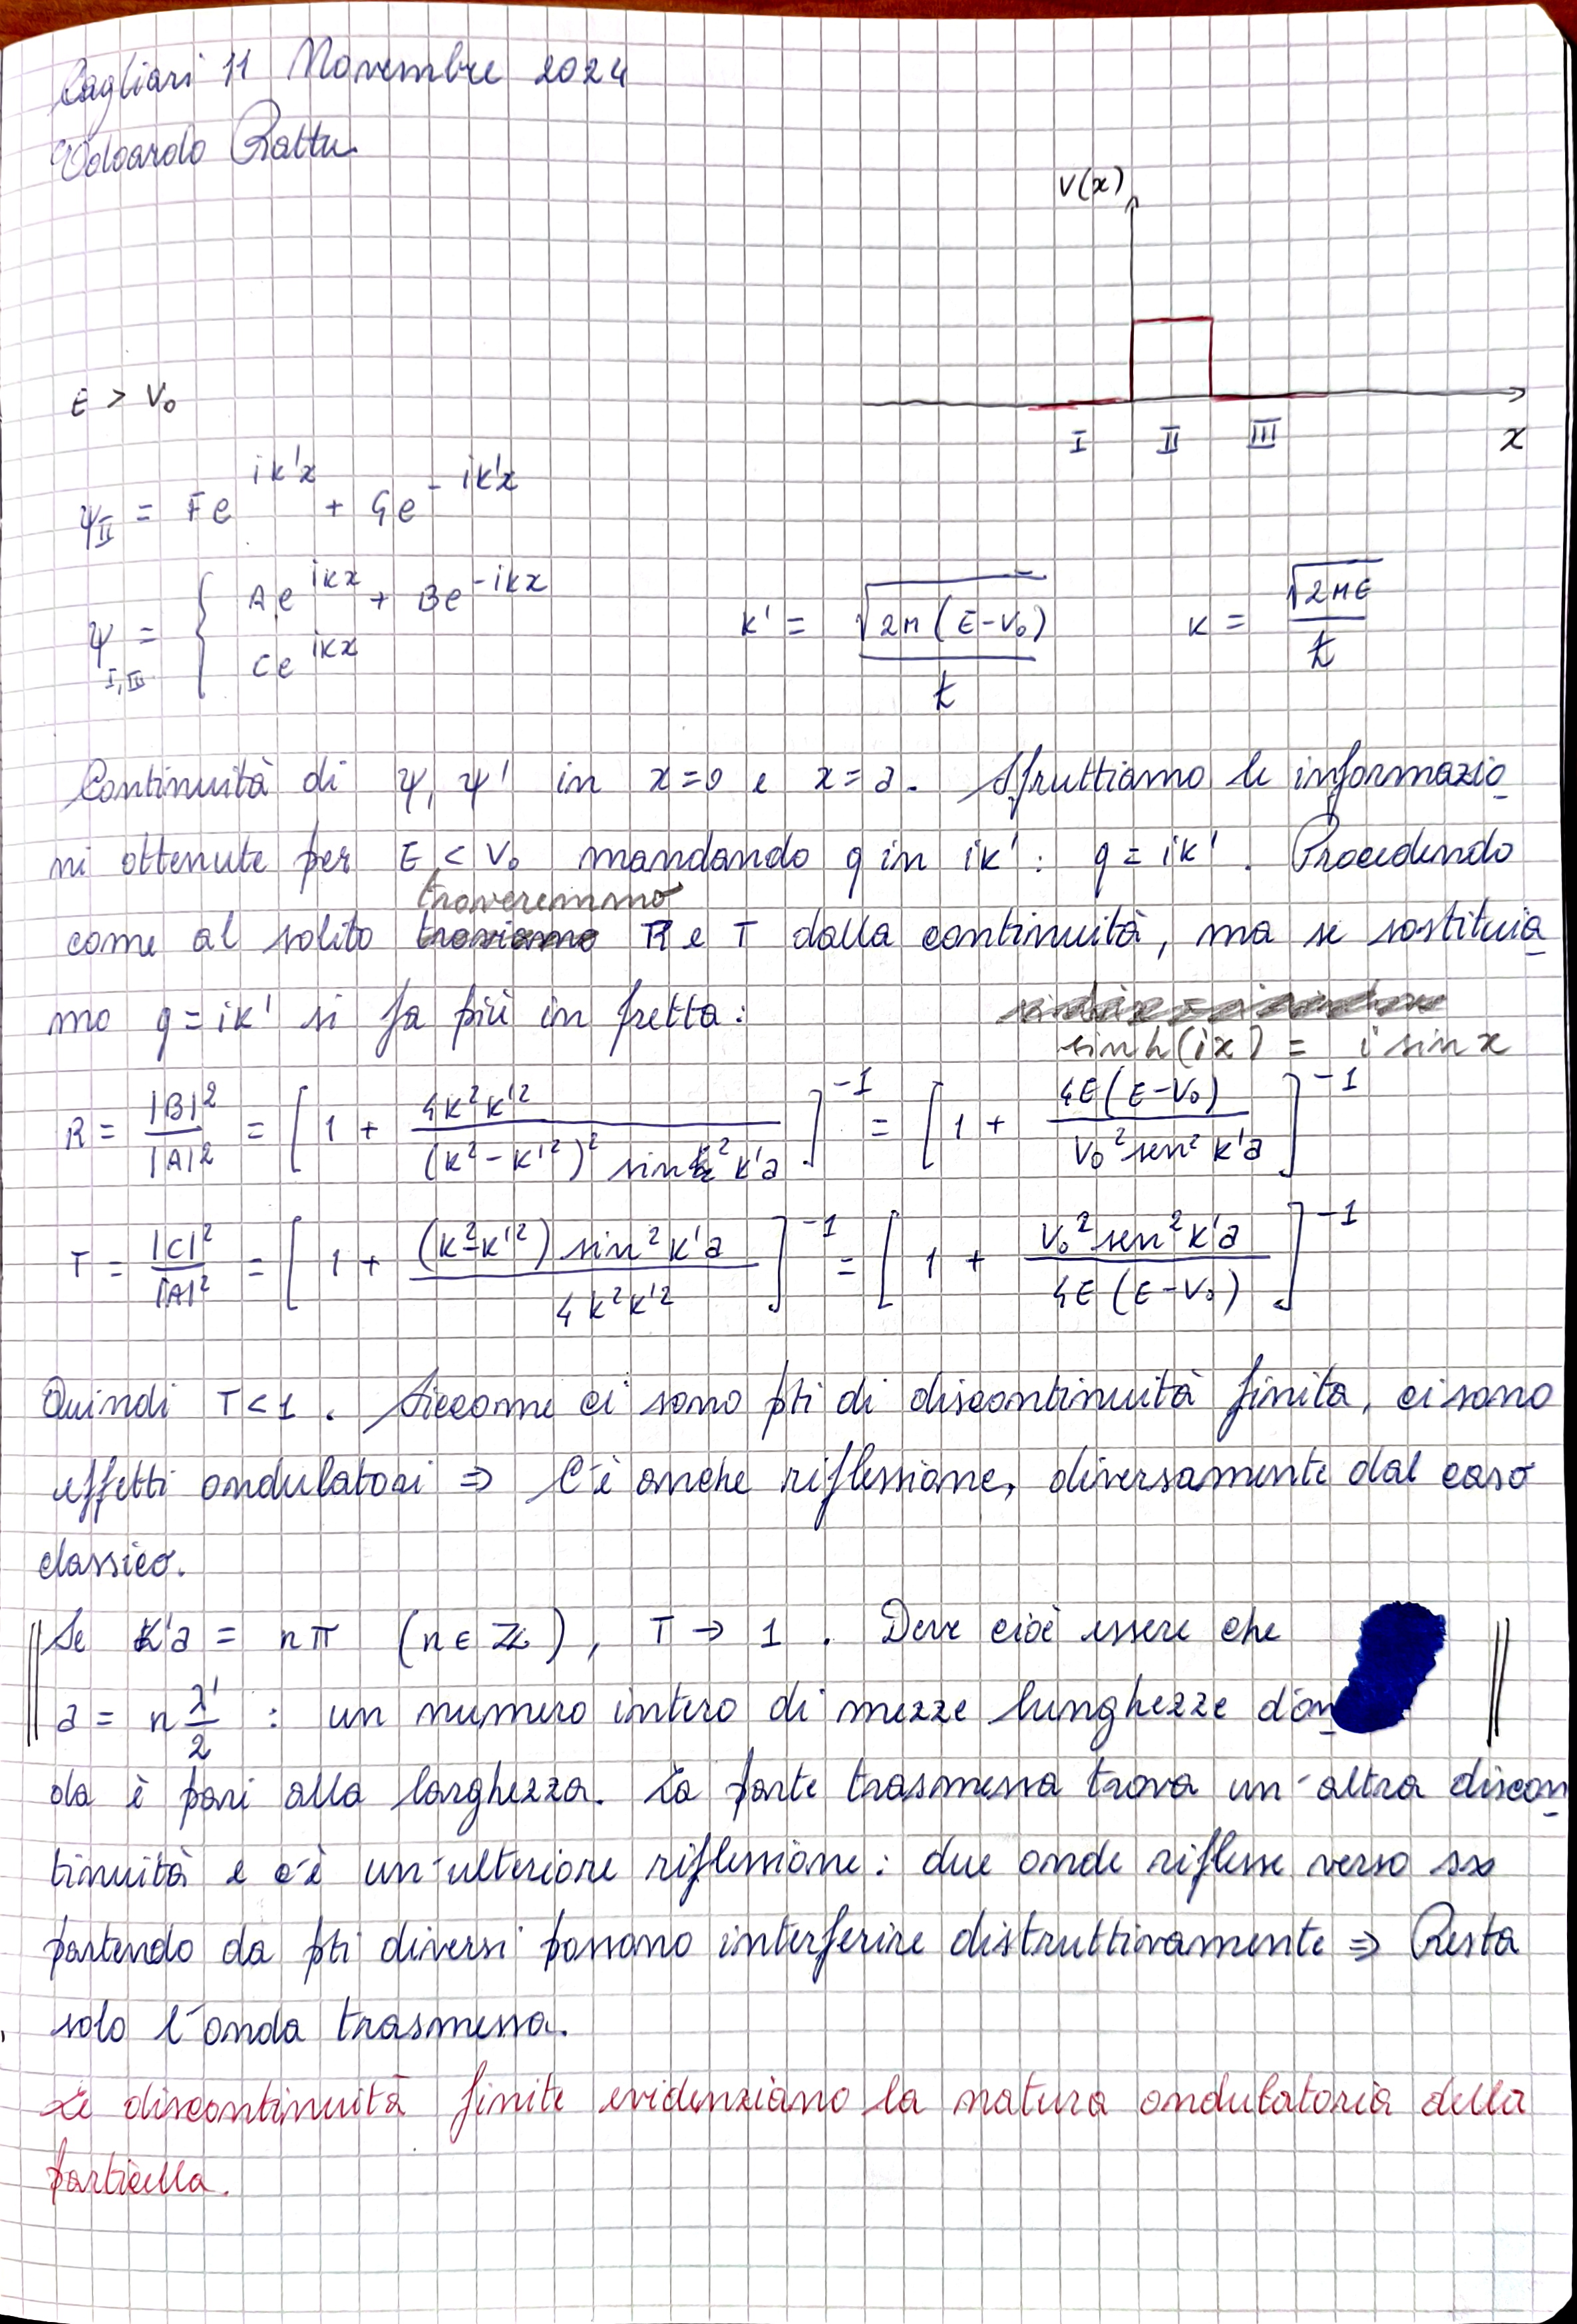 Cagliari 11 Novembre 2024
Edoardo Rattu
V(x)
E > V₀
I II III x
ψ_II = F e^{ik'x} + G e^{-ik'x}
ψ_{I,III} = { A e^{ikx} + B e^{-ikx}
C e^{ikx}
k' = √(2M(E-V₀)) / ħ
k = √(2ME) / ħ
Continuità di ψ, ψ' in x=0 e x=a. Sfruttiamo le informazio
ni ottenute per E < V₀ mandando q in ik': q = ik'. Procedendo
troveremmo
come al solito R e T dalla continuità, ma se sostituia
mo q = ik' si fa più in fretta:
sinh(ix) = i sin x
R = |B|²/|A|² = [1 + 4k²k'²/((k²-k'²)² sin² k'a)]⁻¹ = [1 + 4E(E-V₀)/(V₀² sen² k'a)]⁻¹
T = |C|²/|A|² = [1 + (k²-k'²) sin² k'a/(4k²k'²)]⁻¹ = [1 + V₀² sen² k'a/(4E(E-V₀))]⁻¹
Quindi T<1. Siccome ci sono pti di discontinuità finita, ci sono
effetti ondulatori ⇒ C'è anche riflessione, diversamente dal caso
classico.
Se k'a = nπ (n∈ℤ), T → 1. Deve cioè essere che
a = n λ'/2 : un numero intero di mezze lunghezze d'on
da è pari alla larghezza. La parte trasmessa trova un'altra discon
tinuità e c'è un'ulteriore riflessione: due onde riflesse verso sx
partendo da pti diversi possono interferire distruttivamente ⇒ Resta
solo l'onda trasmessa.
Le discontinuità finite evidenziano la natura ondulatoria della
particella.